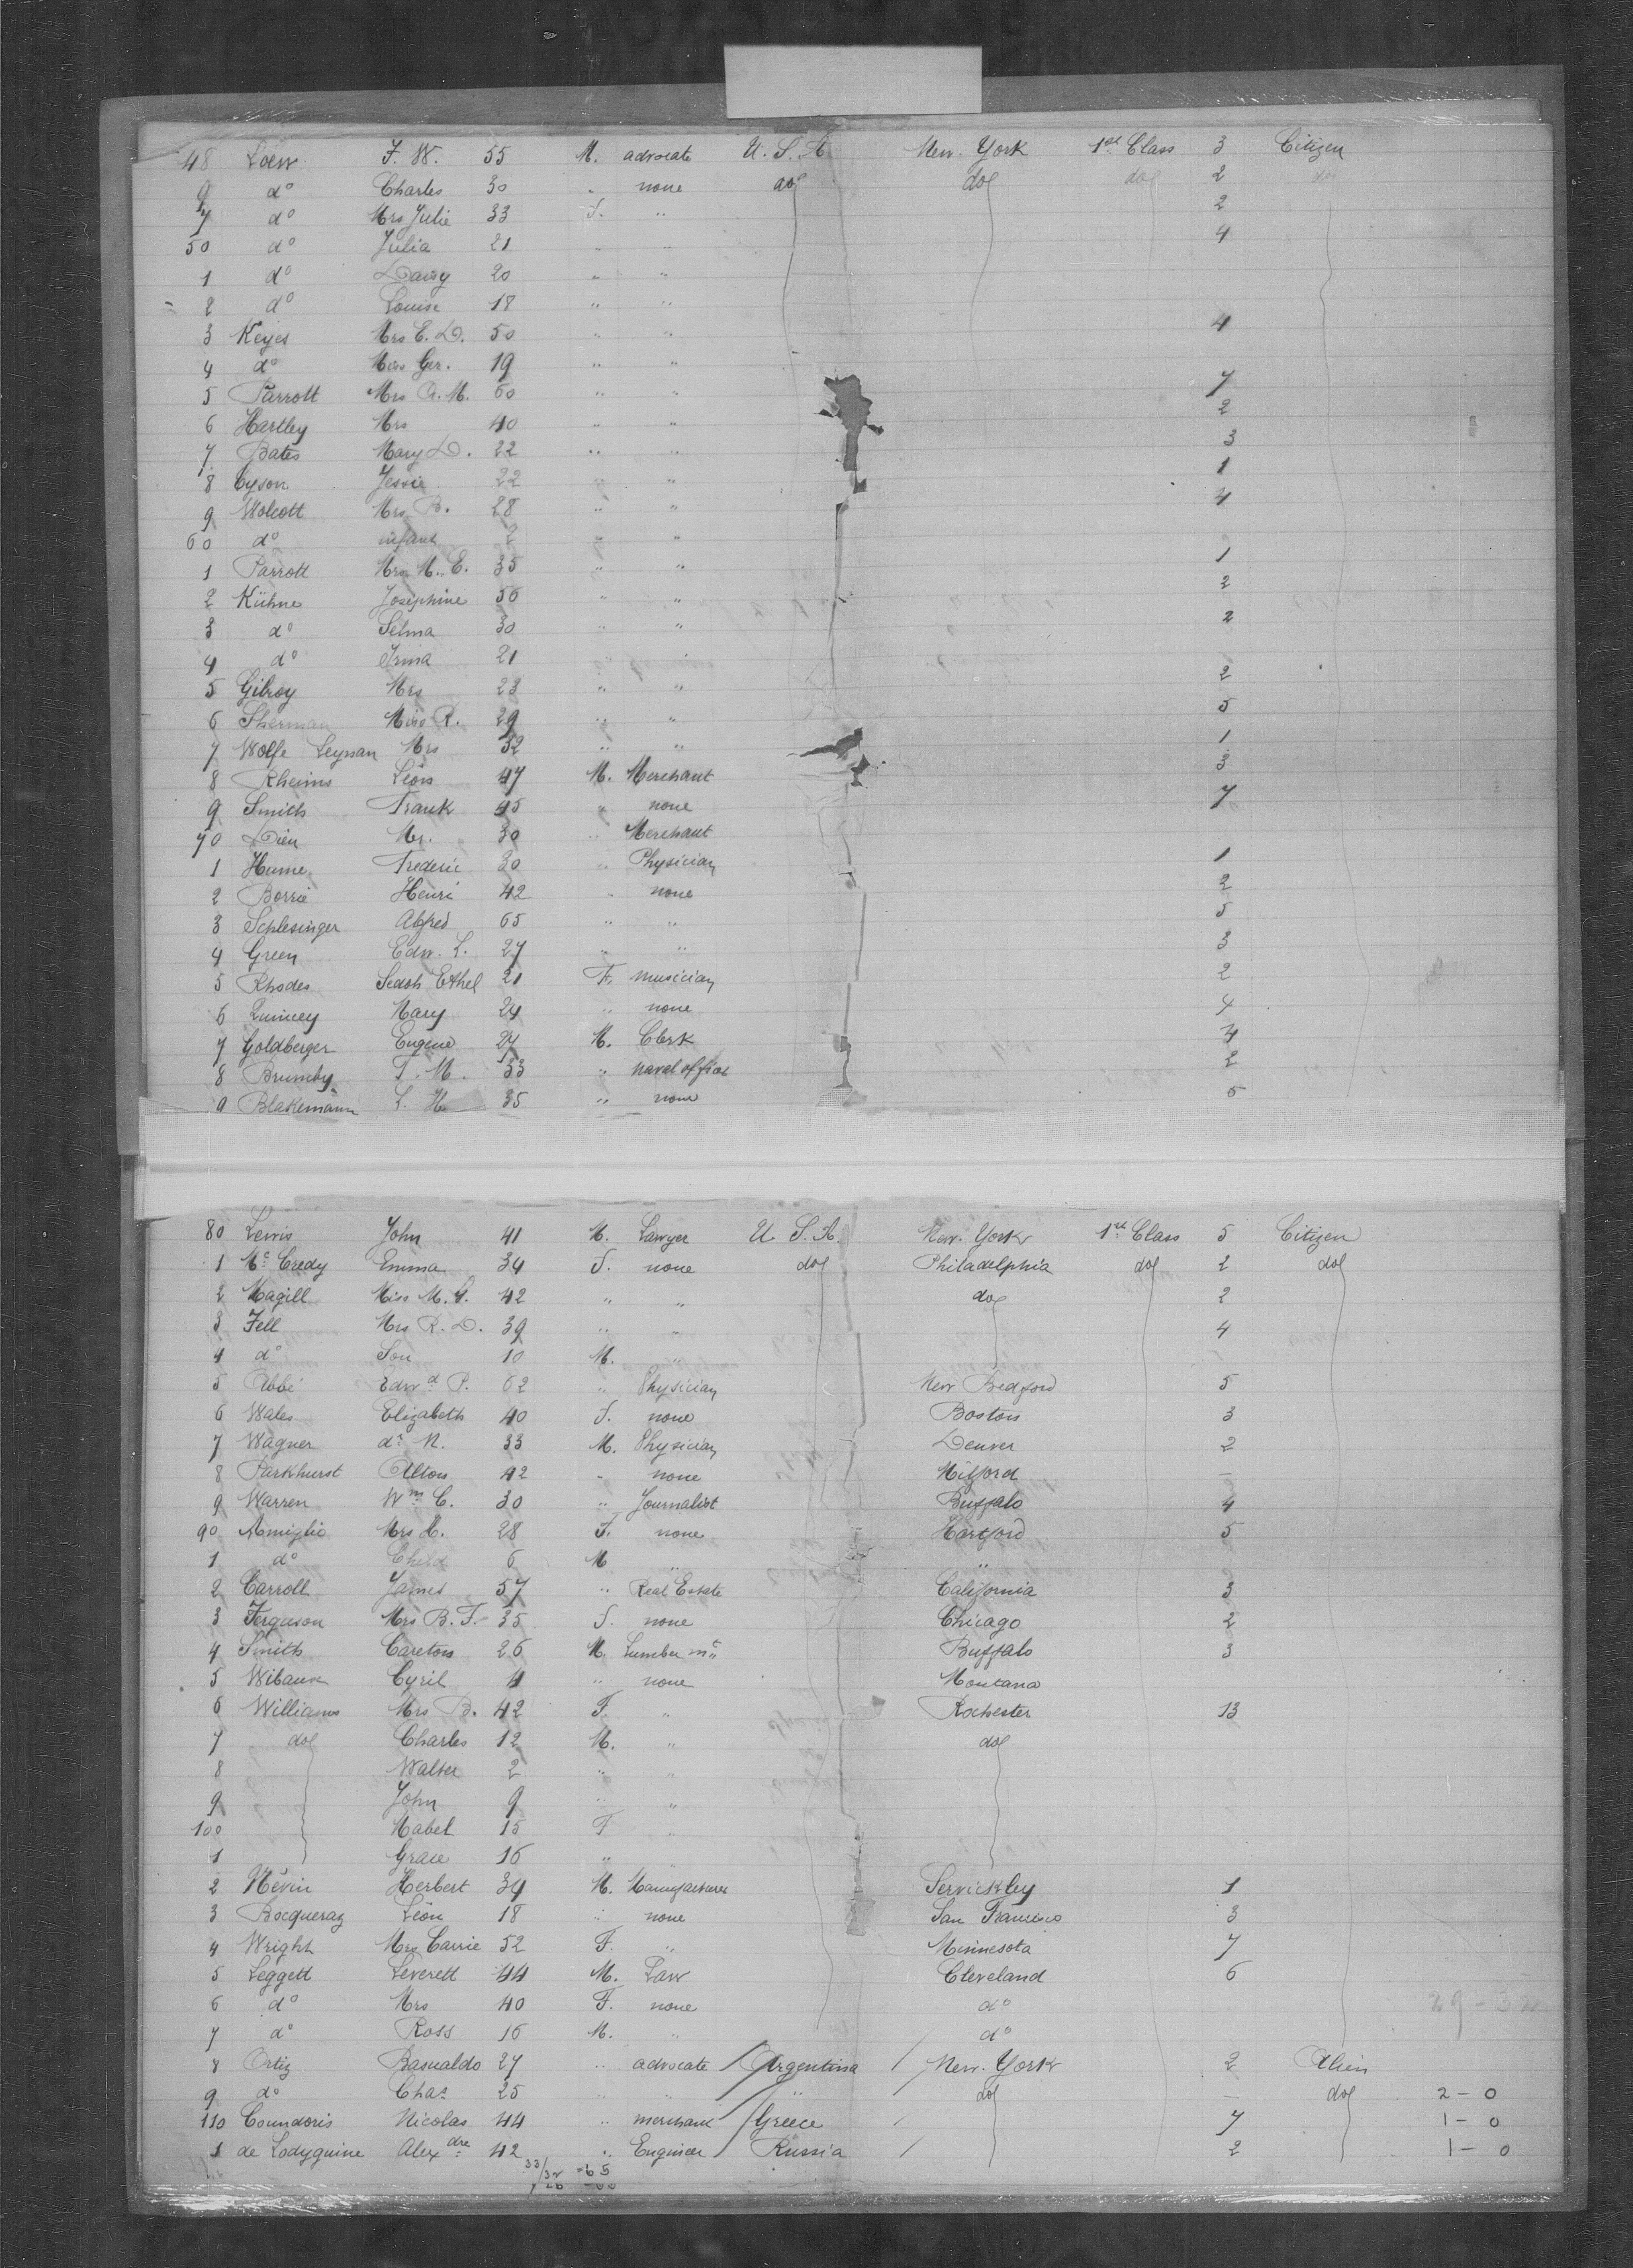 48 Loew F. W. 55 M. advocate U. S. A. New. York 1st Class 3 Citizen
9 do Charles 30 " none do do do 2 do
7 do Mrs Julie 33 F. " 2
50 do Julia 21 " " 4
1 do Daisy 20 " "
2 do Louise 18 " "
3 Keyes Mrs E. D. 50 " " 4
4 do Miss Ger. 19 " "
5 Parrott Mrs A. M. 60 " " 7
6 Hartley Mrs 40 " " 2
7 Bates Mary D. 22 " " 3
8 Cyson Jessie 22 " " 1
9 Wolcott Mrs B. 28 " " 4
60 do infant 2 " "
1 Parrott Mrs M. E. 35 " " 1
2 Kühne Josephine 56 " " 2
3 do Selma 30 " " 2
4 do Irma 21 " "
5 Gilroy Mrs 23 " " 2
6 Sherman Miss R. 29 " " 5
7 Wolfe Leyman Mrs 32 " " 1
8 Rheims Léon 47 M. Merchant 3
9 Smith Frank 45 " none 7
70 Dien Mr. 30 " Merchant
1 Hume Frederic 30 " Physician 1
2 Borrie Henri 42 " none 2
3 Schlesinger Alfred 65 " " 5
4 Green Edw. L. 27 " " 3
5 Rhodes Sedoh Ethel 21 F. musician 2
6 Quincey Mary 24 " none 4
7 Goldberger Eugene 27 M. Clerk 4
8 Brumby T. M. 33 " naval officer 2
9 Blakemann L. H 35 " none 5
80 Lewis John 41 M. Lawyer U. S. A. New. York 1st Class 5 Citizen
1 Mc Credy Emma 34 F. none do Philadelphia do 2 do
2 Magill Miss M. G. 42 " " do 2
3 Fell Mrs R. D. 39 " " 4
4 do Son 10 M. "
5 Abbé Edwd P. 62 " Physician New Bedford 5
6 Wales Elizabeth 40 F. none Boston 3
7 Wagner dr N. 33 M. Physician Denver 2
8 Parkhurst Alton 42 " none Milford —
9 Warren Wm C. 30 " Journalist Buffalo 4
90 Amiglio Mrs H. 28 F. none Hartford 5
1 do Child 6 M " "
2 Carroll James 57 " Real Estate California 3
3 Ferguson Mrs B. F. 35 F. none Chicago 2
4 Smith Careton 26 M. Lumber mr Buffalo 3
5 Wibaux Cyril 11 " none Montana
6 Williams Mrs B. 42 F. " Rochester 13
7 do Charles 12 M. " do
8 Walter 2 " "
9 John 9 " "
100 Mabel 15 F "
1 Grace 16 " "
2 Nevin Herbert 34 M. Manufacturer Servickley 1
3 Bocqueraz Léon 18 " none San Francisco 3
4 Wright Mrs Carrie 52 F. " Minnesota 7
5 Leggett Leverett 44 M. Law Cleveland 6
6 do Mrs 40 F. none do 29-32
7 do Ross 16 M. " do
8 Ortiz Basualdo 27 " advocate / Argentina / New. York 2 Alien
9 do Chas 25 " " / " do — do 2 - 0
110 Coundoris Nicolas 44 " merchant / Greece / 7 1 - 0
1 de Lodyguine Alexdre 42 " Engineer / Russia / 2 1 - 0